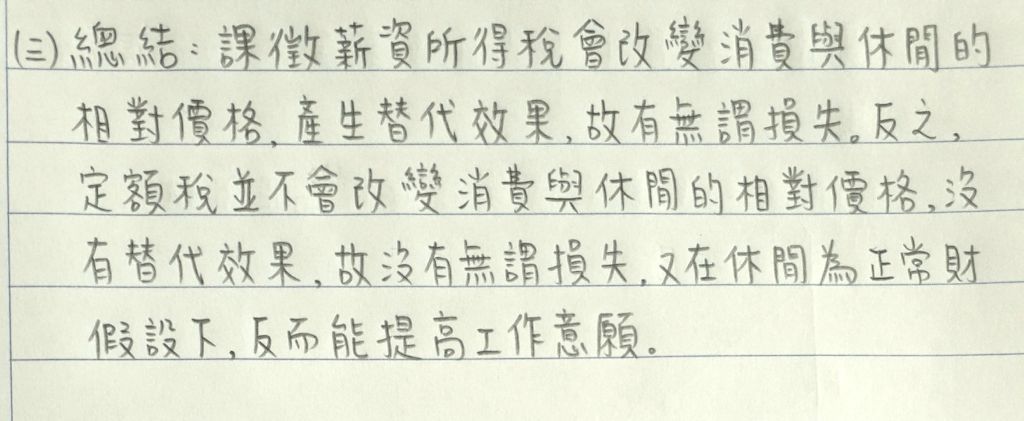 (三)總結：課徵薪資所得稅會改變消費與休閒的
相對價格，產生替代效果，故有無謂損失。反之，
定額稅並不會改變消費與休閒的相對價格，沒
有替代效果，故沒有無謂損失，又在休閒為正常財
假設下，反而能提高工作意願。